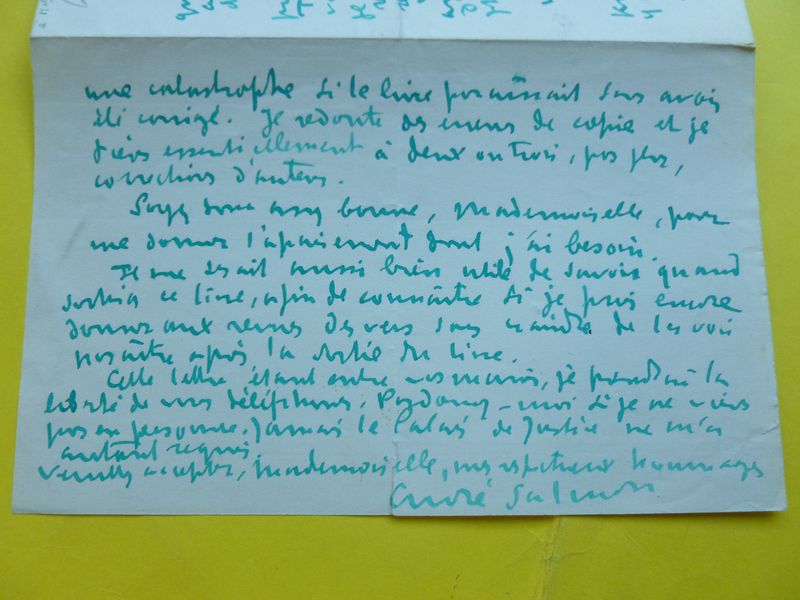 une catastrophe si le livre paraissait sans avoir
été corrigé. Je redoute des erreurs de copie et je
tiens essentiellement à deux ou trois, pas plus,
corrections d'auteur.
Soyez donc assez bonne, Mademoiselle, pour
me donner l'apaisement dont j'ai besoin.
Il me serait aussi bien utile de savoir quand
sortira ce livre, afin de connaître si je puis encore
donner aux revues des vers sans craindre de les voir
paraître après la sortie du livre.
Cette lettre étant entre vos mains, je prendrai la
liberté de vous téléphoner. Pardonnez-moi si je ne viens
pas en personne. Jamais le Palais de Justice ne m'a
autant requis.
Veuillez accepter, Mademoiselle, mes respectueux hommages
André Salmon